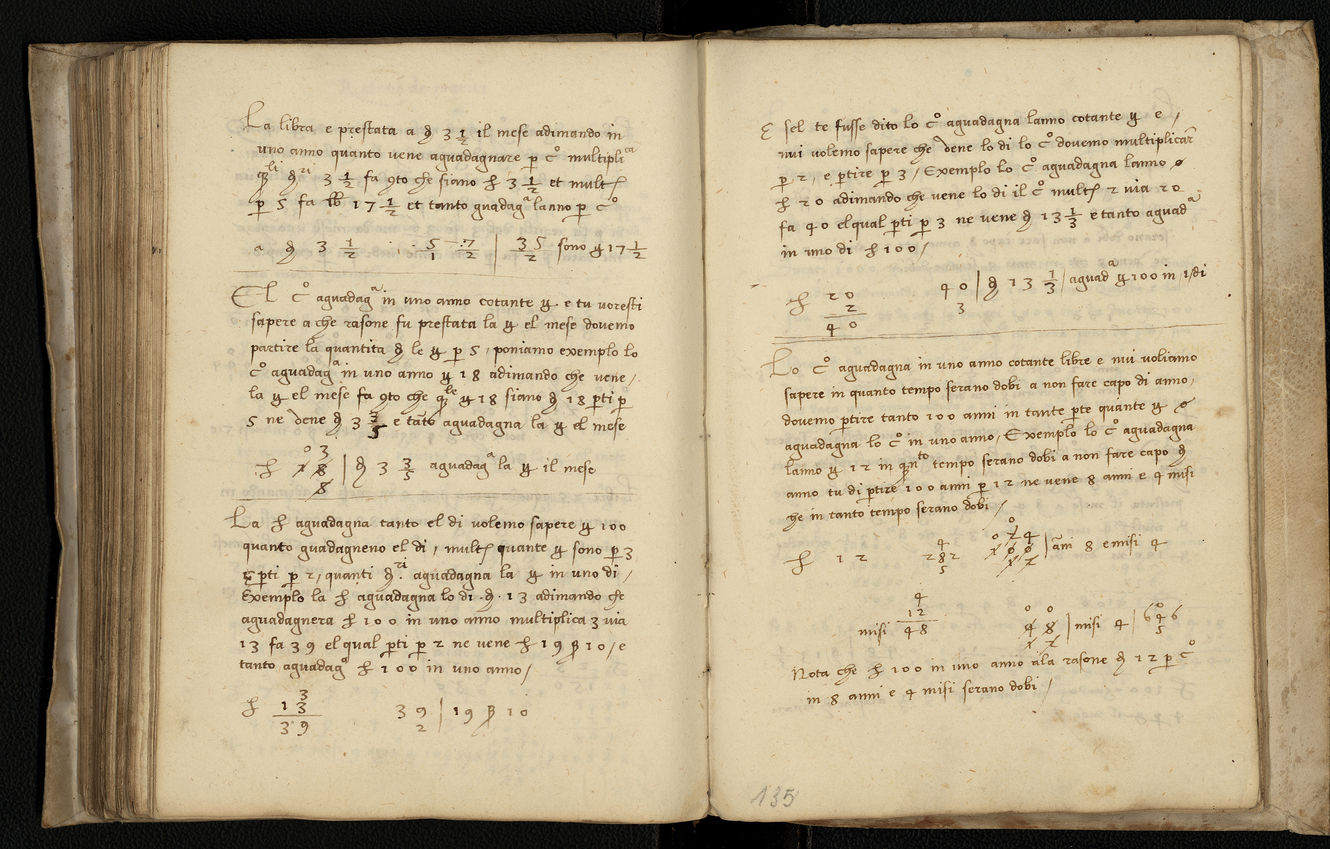 La libra e prestata a ₰ 3 1/2 il mese adimando in
uno anno quanto vene aguadagnare p cͦ multiplicᵃ
3 1/2 fa 9to che siano 3 1/2 et mult
p 5 fa lb 17 1/2 et tanto guadagᵃ lanno p cͦ
a ₰ 3 1/2 5/1 7/2 | 35/2 sono 17 1/2
El cͦ aguadagᵃ in uno anno cotante e tu voresti
sapere a che rasone fu prestata la el mese dovemo
partire la quantita ₰ le p 5 poniamo exemplo lo
cͦ aguadagᵃ in uno anno 18 adimando che vene
la el mese fa 9to che 18 siano ₰ 18 pti p
5 ne vene ₰ 3 3/5 e tato aguadagna la el mese
0 3
1 8 | ₰ 3 3/5 aguadagᵃ la il mese
La aguadagna tanto el di volemo sapere 100
quanto guadagneno el di, mult quante sono p 3
pti p 2, quanti aguadagna la in uno di /
Exemplo la aguadagna lo di ₰ 13 adimando che
aguadagnera 100 in uno anno multiplica 3 via
13 fa 39 el qual pti p 2 ne vene 19 β 10 / e
tanto aguadagᵃ 100 in uno anno /
3
13
39 39 | 19 β 10
2
E sel te fusse dito lo cͦ aguadagna lanno cotante e /
nui volemo sapere che vene lo di lo cͦ dovemo multiplicar
p 2, e ptire p 3 / Exemplo lo cͦ aguadagna lanno
20 adimando che vene lo di il cͦ mult 2 via 20
fa 40 el qual pti p 3 ne vene ₰ 13 1/3 e tanto aguadᵃ
in uno di 100 /
20 40 | ₰ 13 1/3 / aguadᵃ 100 in 1 di
2 3
40
Lo cͦ aguadagna in uno anno cotante libre e nui voliamo
sapere in quanto tempo serano dobi a non fare capo di anno,
dovemo ptire tanto 100 anni in tante pte quante
aguadagna lo cͦ in uno anno / Exemplo lo cͦ aguadagna
lanno 12 in qnto tempo serano dobi a non fare capo ₰
anno tu di ptire 100 anni p 12 ne vene 8 anni e 4 misi
che in tanto tempo serano dobi /
12 | ani 8 e misi 4
4
12
misi 48 | misi 4 |
Nota che 100 in uno anno ala rasone ₰ 12 p cͦ
in 8 anni e 4 misi serano dobi /
135